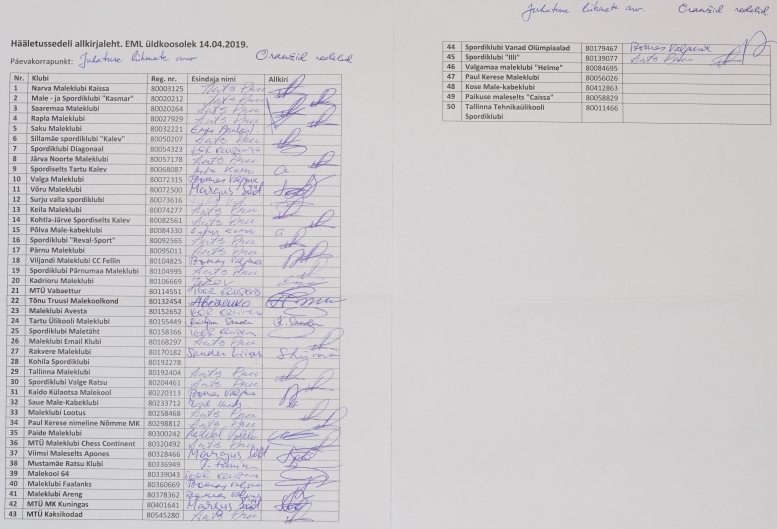 Juhatuse liikmete arv Oranžid sedelid
Hääletussedeli allkirjaleht. EML üldkoosolek 14.04.2019.
Päevakorrapunkt: Juhatuse liikmete arv Oranžid sedelid
Nr. Klubi Reg. nr. Esindaja nimi Allkiri
1 Narva Maleklubi Kaissa 80003125 Ants Pree
2 Male - ja Spordiklubi "Kasmar" 80020212 Ants Pree
3 Saaremaa Maleklubi 80020264 Ants Pree
4 Rapla Maleklubi 80027929 Ants Pree
5 Saku Maleklubi 80032221
6 Sillamäe spordiklubi "Kalev" 80050207 Ants Pree
7 Spordiklubi Diagonaal 80054323
8 Järva Noorte Maleklubi 80057178 Ants Pree
9 Spordiselts Tartu Kalev 80068087
10 Valga Maleklubi 80072315 Toomas Valgma
11 Võru Maleklubi 80072500 Margus Sööt
12 Surju valla spordiklubi 80073616
13 Keila Maleklubi 80074277 Ants Pree
14 Kohtla-Järve Spordiselts Kalev 80082561 Ants Pree
15 Põlva Male-kabeklubi 80084330
16 Spordiklubi "Reval-Sport" 80092565 Ants Pree
17 Pärnu Maleklubi 80095011 Ants Pree
18 Viljandi Maleklubi CC Fellin 80104825 Toomas Valgma
19 Spordiklubi Pärnumaa Maleklubi 80104995 Ants Pree
20 Kadrioru Maleklubi 80106669
21 MTÜ Vabaettur 80114551
22 Tõnu Truusi Malekoolkond 80132454
23 Maleklubi Avesta 80152652
24 Tartu Ülikooli Maleklubi 80155449 Sander
25 Spordiklubi Maletäht 80158366
26 Maleklubi Email Klubi 80168297 Ants Pree
27 Rakvere Maleklubi 80170182 Sander
28 Kohila Spordiklubi 80192278
29 Tallinna Maleklubi 80192404 Ants Pree
30 Spordiklubi Valge Ratsu 80204461 Ants Pree
31 Kaido Külaotsa Malekool 80220313 Toomas Valgma
32 Saue Male-Kabeklubi 80233712
33 Maleklubi Lootus 80258468 Ants Pree
34 Paul Kerese nimeline Nõmme MK 80298812 Ants Pree
35 Paide Maleklubi 80300242
36 MTÜ Maleklubi Chess Continent 80320492 Ants Pree
37 Viimsi Maleselts Apones 80328466 Margus Sööt
38 Mustamäe Ratsu Klubi 80336949
39 Malekool 64 80339043
40 Maleklubi Faalanks 80360669 Toomas Valgma
41 Maleklubi Areng 80378362 Toomas Valgma
42 MTÜ MK Kuningas 80401641 Margus Sööt
43 MTÜ Kaksikodad 80545280 Ants Pree
44 Spordiklubi Vanad Olümpiaalad 80179467 Toomas Valgma
45 Spordiklubi "Illi" 80139077 Ants Pree
46 Valgamaa maleklubi "Helme" 80084695
47 Paul Kerese Maleklubi 80056026
48 Kose Male-kabeklubi 80412863
49 Paikuse maleselts "Caissa" 80058829
50 Tallinna Tehnikaülikooli 80011466
Spordiklubi